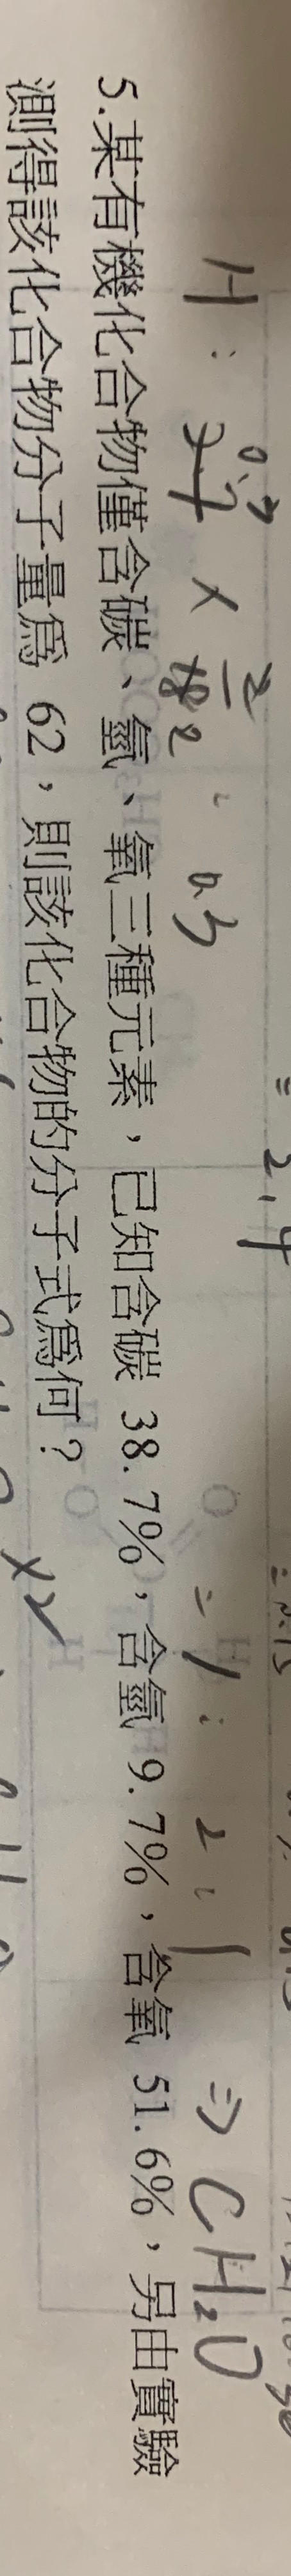 = 2.4
H : × = 0.3
= 1 : 2 : 1 ⇒ CH₂O
5.某有機化合物僅含碳、氫、氧三種元素，已知含碳 38.7%，含氫 9.7%，含氧 51.6%，另由實驗
測得該化合物分子量爲 62，則該化合物的分子式爲何？
×2